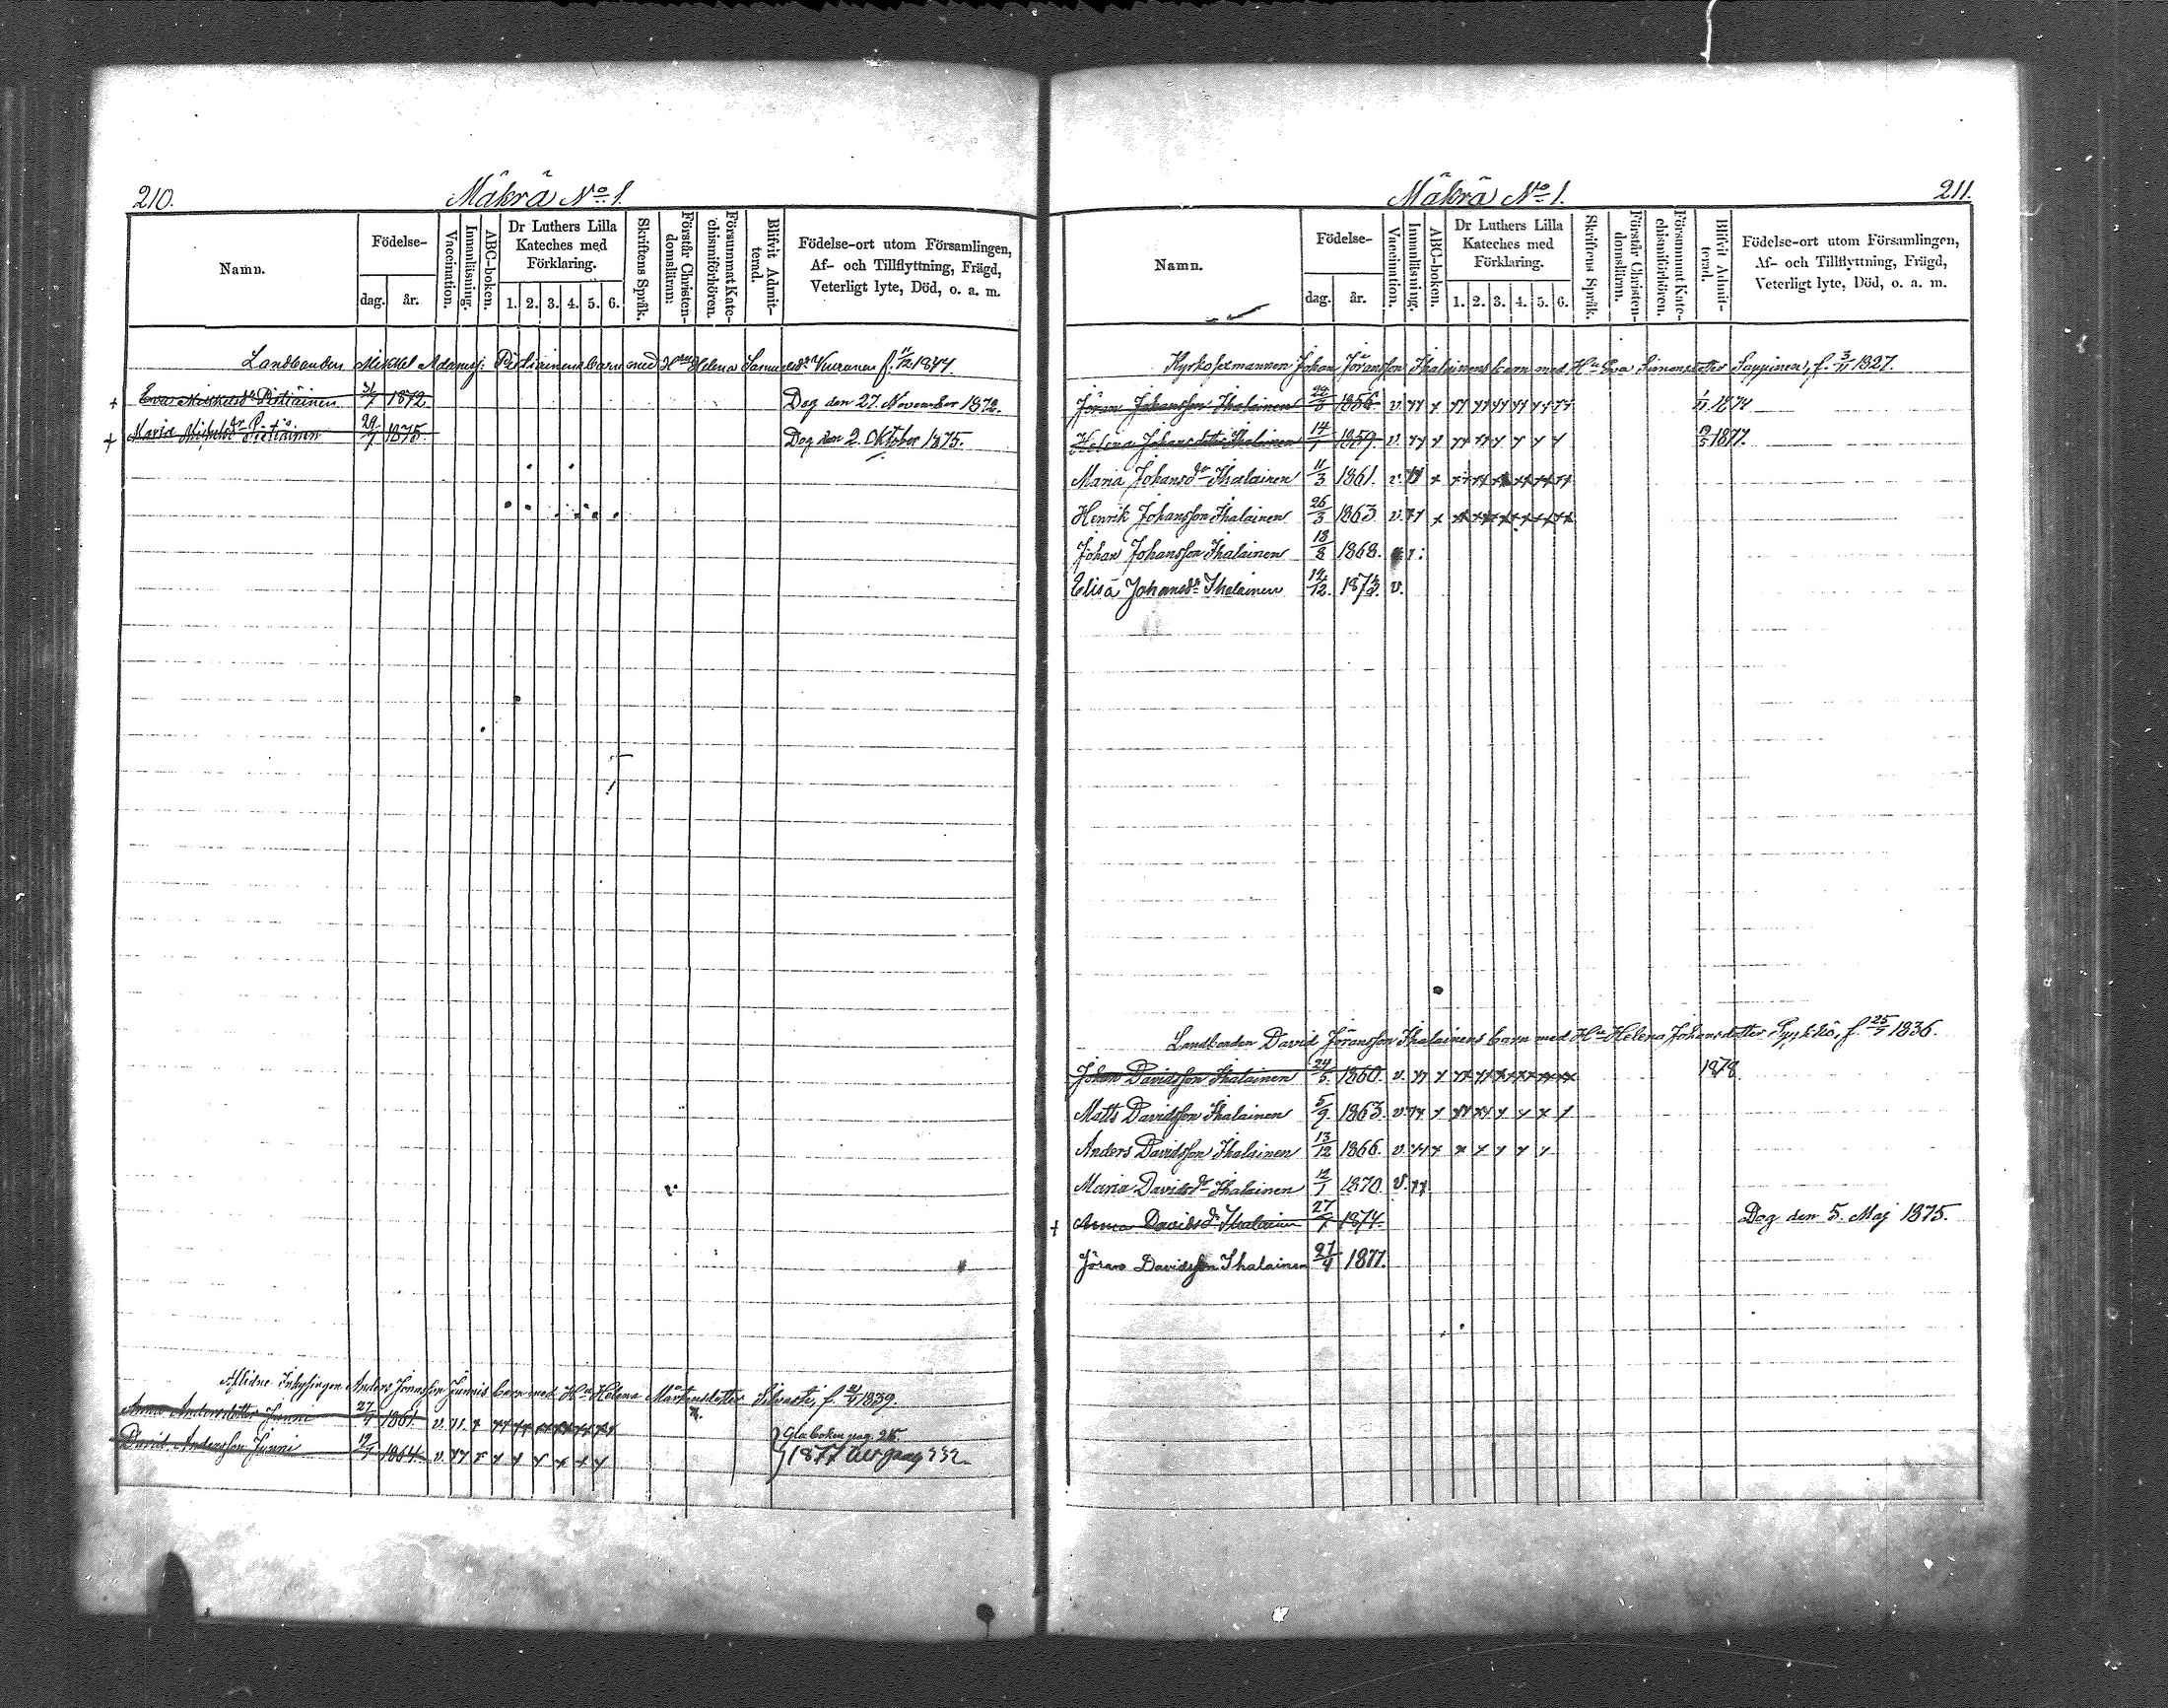 210.
Mäkrä No 1.
Namn.
Födelse-
dag. år.
Vaccination.
Innanläsning.
ABC-boken.
Dr Luthers Lilla
Kateches med
Förklaring.
1. 2. 3. 4. 5. 6.
Skriftens Språk.
Förstår Christen-
domsläran:
Försummat Kate-
chismiförhören.
Blifvit Admit-
terad.
Födelse-ort utom Församlingen,
Af- och Tillflyttning, Frägd,
Veterligt lyte, Död, o. a. m.
Landbonden Mikkel Adamss: Pietiäinens barn med Hu Helena Samuelsdr Vuoranen f. 11/12 1844.
1872 Dog den 27. November 1872.
Maria Mikkelsdr Pietiäinen 29/7 1875. Dog den 2. Oktober 1875.
Aflidne Inhysingen Anders Jönasson Junnis barn med Hu Helena Mårtensdotter f. 1839.
Anna Andersdotter Junni 27/7 1861. v. Gla boken pag. 215
David Andersson Junni 19/7 1864. v. 1877 232
Mäkrä No 1.
211.
Namn.
Födelse-
dag. år.
Vaccination.
Innanläsning.
ABC-boken.
Dr Luthers Lilla
Kateches med
Förklaring.
1. 2. 3. 4. 5. 6.
Skriftens Språk.
Förstår Christen-
domsläran.
Försummat Kate-
chismiförhören.
Blifvit Admit-
terad.
Födelse-ort utom Församlingen,
Af- och Tillflyttning, Frägd,
Veterligt lyte, Död, o. a. m.
Kyrkosexmannen Johan Jöransson Ihalainens barn med Hu Eva Simonsdotter Sappinen, f. 3/11 1827.
Jöran Johansson Ihalainen 1856. v. 1874
Helena Johansdotter Ihalainen 14/1 1859 v. 1877.
Maria Johansdr Ihalainen 11/3 1861. v.
Henrik Johansson Ihalainen 26/3 1863 v.
Johan Johansson Ihalainen 13/8 1868.
Elisa Johansdr Ihalainen 14/12 1873. v.
Landbonden David Jöransson Ihalainens barn med Hu Helena Johansdotter Pyykkö, f. 25/7 1836.
Johan Davidsson Ihalainen 24/5 1860. v. 1878
Matts Davidsson Ihalainen 5/9 1863. v.
Anders Davidsson Ihalainen 13/12 1866. v.
Maria Davidsdr Ihalainen 12/1 1870. v.
Anna Davidsdr Ihalainen 27/1 1874. Dog den 5. Maj 1875.
Jöran Davidsson Ihalainen 27/4 1877.